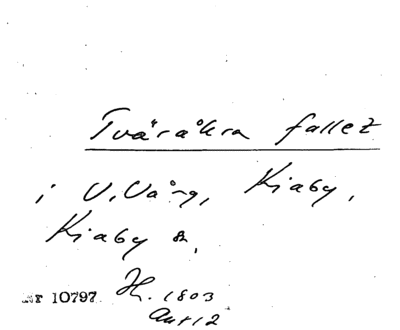 Tväråkra fallet
i V. Vång, Kiaby,
Kiaby s.
Nr 10797 H. 1803